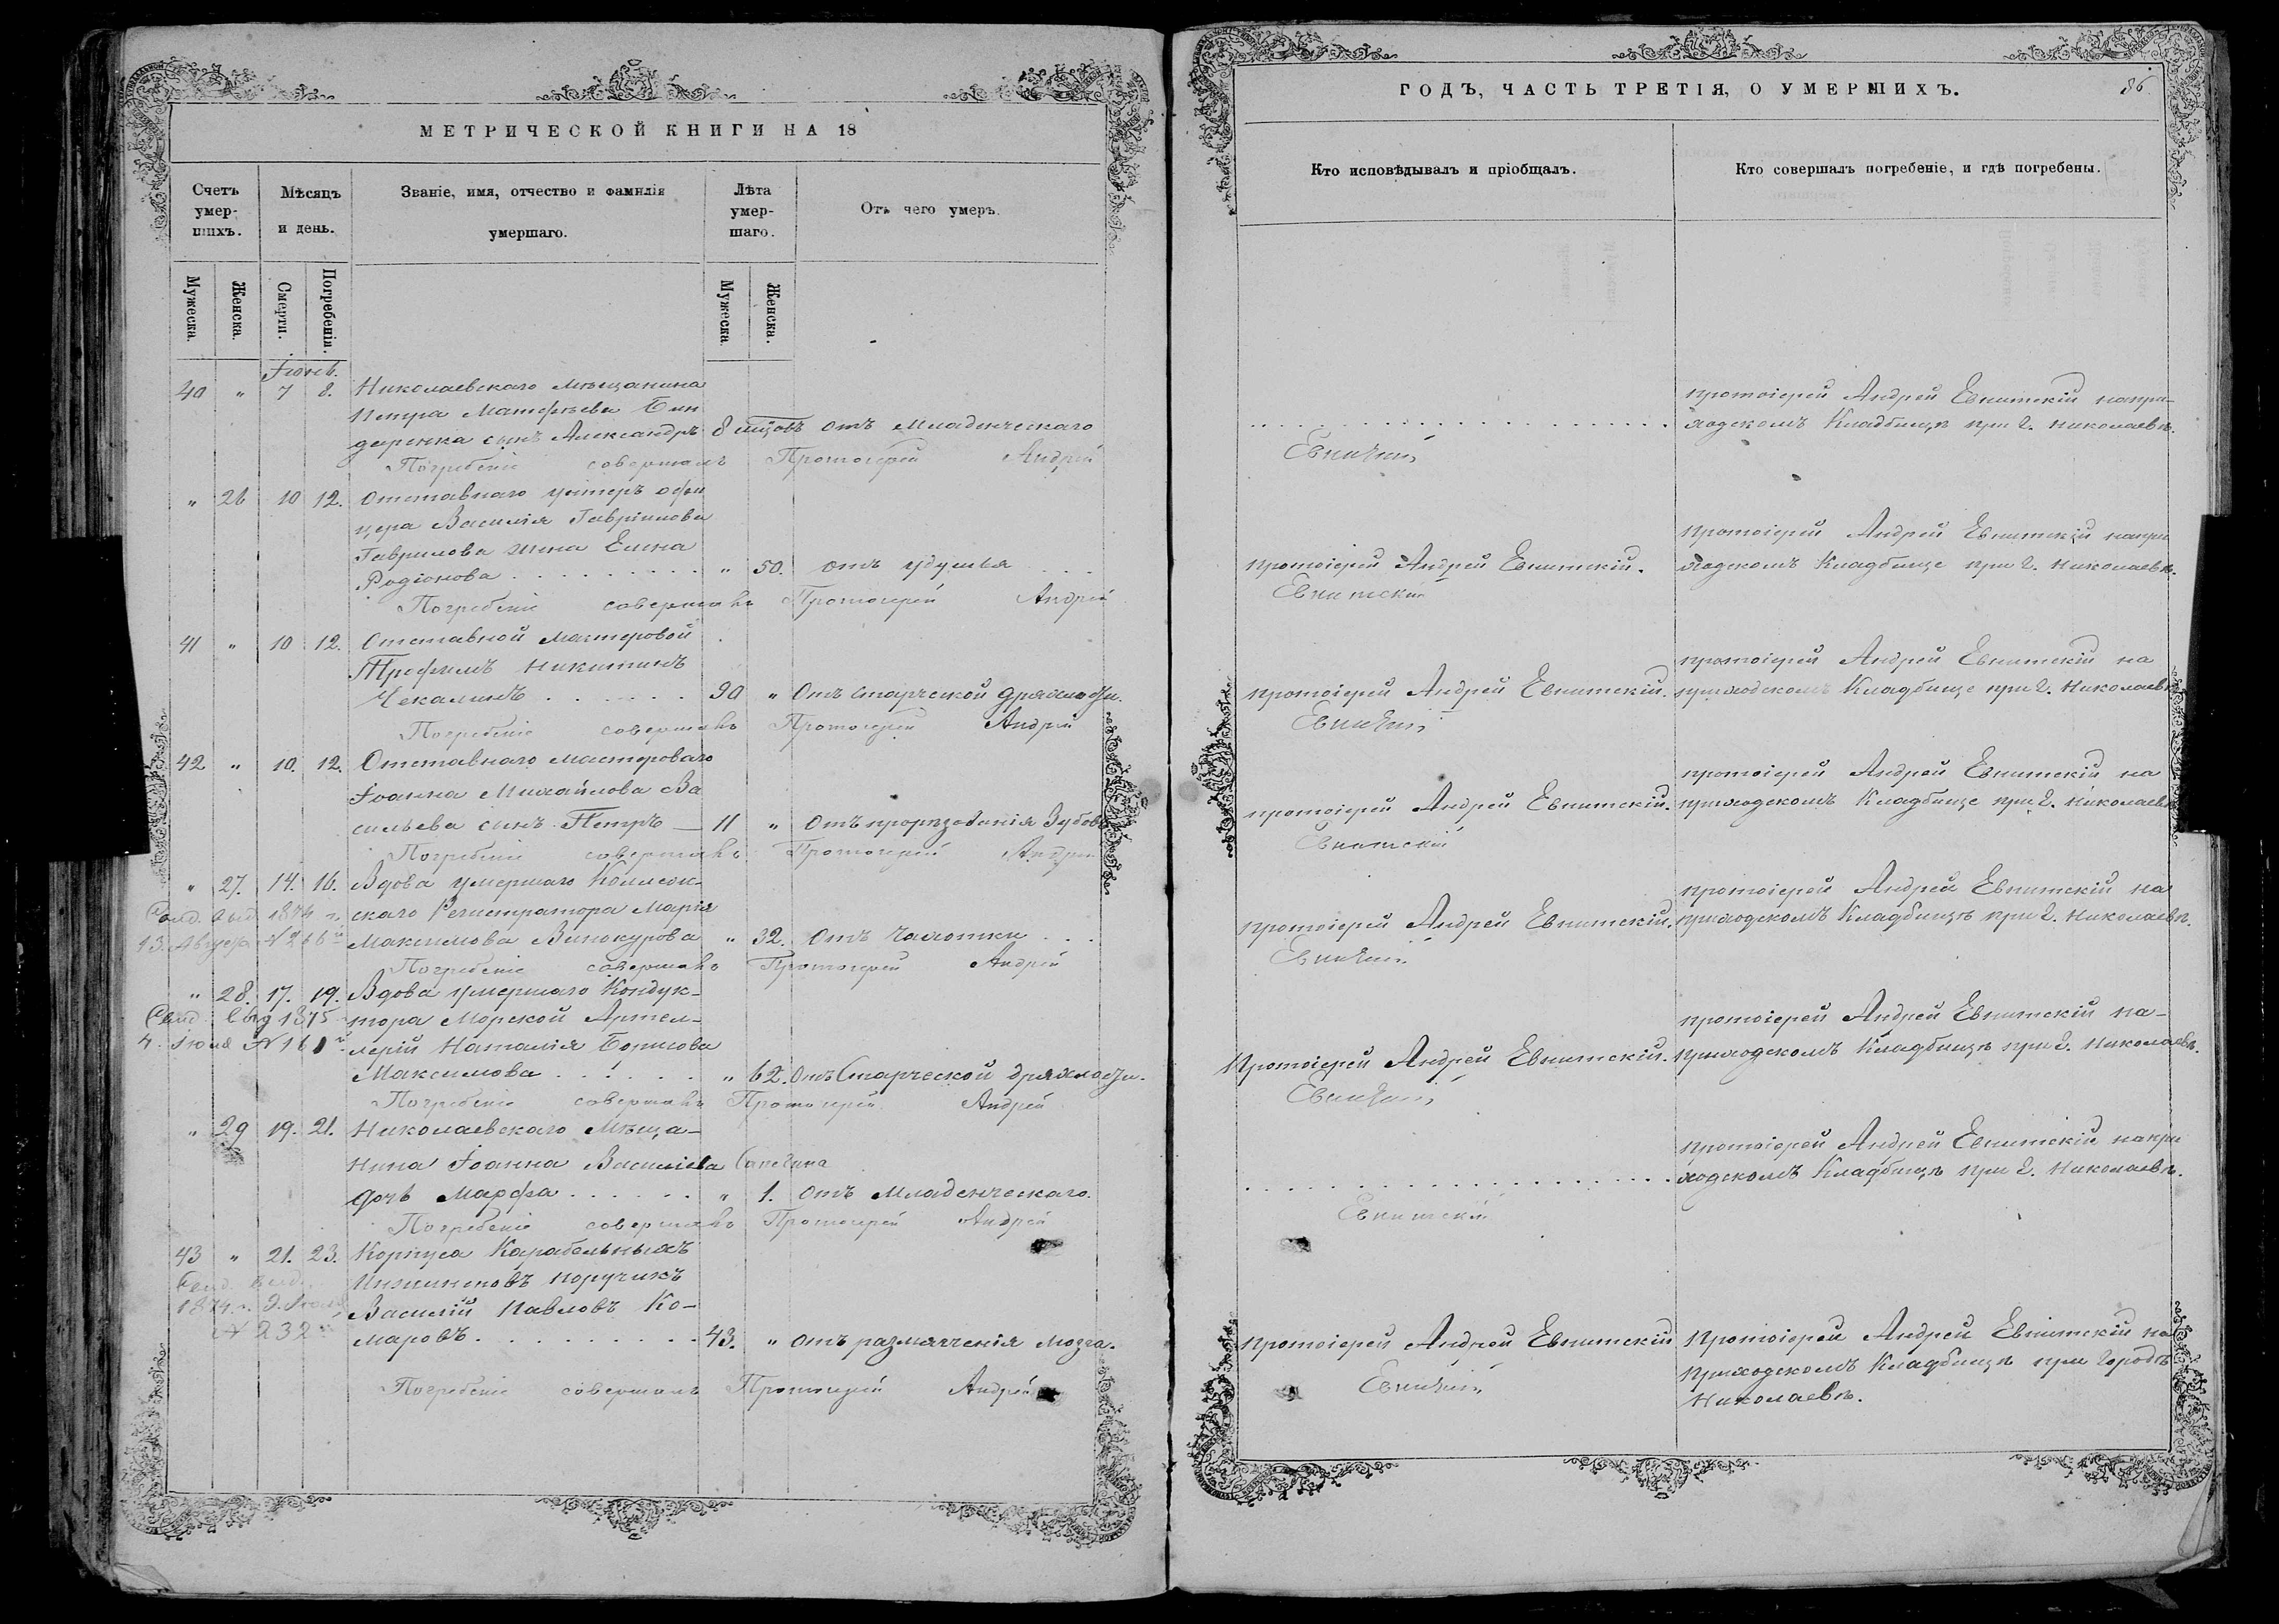 МЕТРИЧЕСКОЙ КНИГИ НА 18
Счетъ умершихъ.
Мѣсяцъ и день.
Званіе, имя, отчество и фамилія умершаго.
Лѣта умершаго.
Отъ чего умеръ.
Мужеска.
Женска.
Смерти.
Погребенія.
Мужеска.
Женска.
Іюнь.
40 " 7 8. Николаевскаго мѣщанина
Петра Матфѣева
сынъ Александръ 8 отъ Младенческаго
Погребеніе совершалъ Протоіерей Андрей
" 26 10 12. Отставнаго унтеръ офи
цера Василія Гавріилова
Гаврилова жена Елена
Родіонова " 50. отъ удушья
Погребеніе совершалъ Протоіерей Андрей
41 " 10 12. Отставной мастеровой
Трофимъ Никитинъ
Чекалинъ 90 " Отъ Старческой дряхлости.
Погребеніе совершалъ Протоіерей Андрей
42 " 10. 12. Отставнаго мастероваго
Іоанна Михайлова Ва
сильева сынъ Петръ — 11 " Отъ прорѣзованія Зубовъ
Погребеніе совершалъ Протоіерей Андрей
" 27. 14. 16. Вдова умершаго Коллеж-
1874 г. скаго Регистратора Марія
13. Августа № 266 Максимова Винокурова " 32. отъ чахотки
Погребеніе совершалъ Протоіерей Андрей
" 28. 17. 19. Вдова умершаго Кондук-
1875 тора Морской Артил-
4. Іюля лерій Наталія Борисова
Максимова " 62. Отъ Старческой дряхлости.
Погребеніе совершалъ Протоіерей Андрей
" 29 19. 21. Николаевскаго Мѣща-
нина Іоанна Василіева
дочь Марфа " 1. отъ Младенческаго.
Погребеніе совершалъ Протоіерей Андрей
43 " 21. 23. Корпуса Карабельныхъ
поручикъ
1874 г. Василій Павловъ Ко-
№ 232 маровъ 43. " отъ размягченія мозга.
Погребеніе совершалъ Протоіерей Андрей
ГОДЪ, ЧАСТЬ ТРЕТІЯ, О УМЕРШИХЪ.
86.
Кто исповѣдывалъ и пріобщалъ.
Кто совершалъ погребеніе, и гдѣ погребены.
протоіерей Андрей Евнитскій на при-
ходскомъ Кладбищѣ при г. Николаевѣ.
Евнитскій
протоіерей Андрей Евнитскій на при
протоіерей Андрей Евнитскій. ходскомъ Кладбище при г. Николаевѣ.
Евнитскій
протоіерей Андрей Евнитскій на
протоіерей Андрей Евнитскій. приходскомъ Кладбище при г. Николаевѣ
Евнитскій
протоіерей Андрей Евнитскій на
протоіерей Андрей Евнитскій. приходскомъ Кладбище при г. Николаевѣ
Евнитскій
протоіерей Андрей Евнитскій на
протоіерей Андрей Евнитскій. приходскомъ Кладбищѣ при г. Николаевѣ.
Евнитскій
протоіерей Андрей Евнитскій на-
Протоіерей Андрей Евнитскій. приходскомъ Кладбищѣ при г. Николаевѣ.
Евнитскій
протоіерей Андрей Евнитскій на при
ходскомъ Кладбищѣ при г. Николаевѣ.
Евнитскій
протоіерей Андрей Евнитскій Протоіерей Андрей Евнитскій на
приходскомъ Кладбищѣ при городѣ
Евнитскій
Николаевѣ.